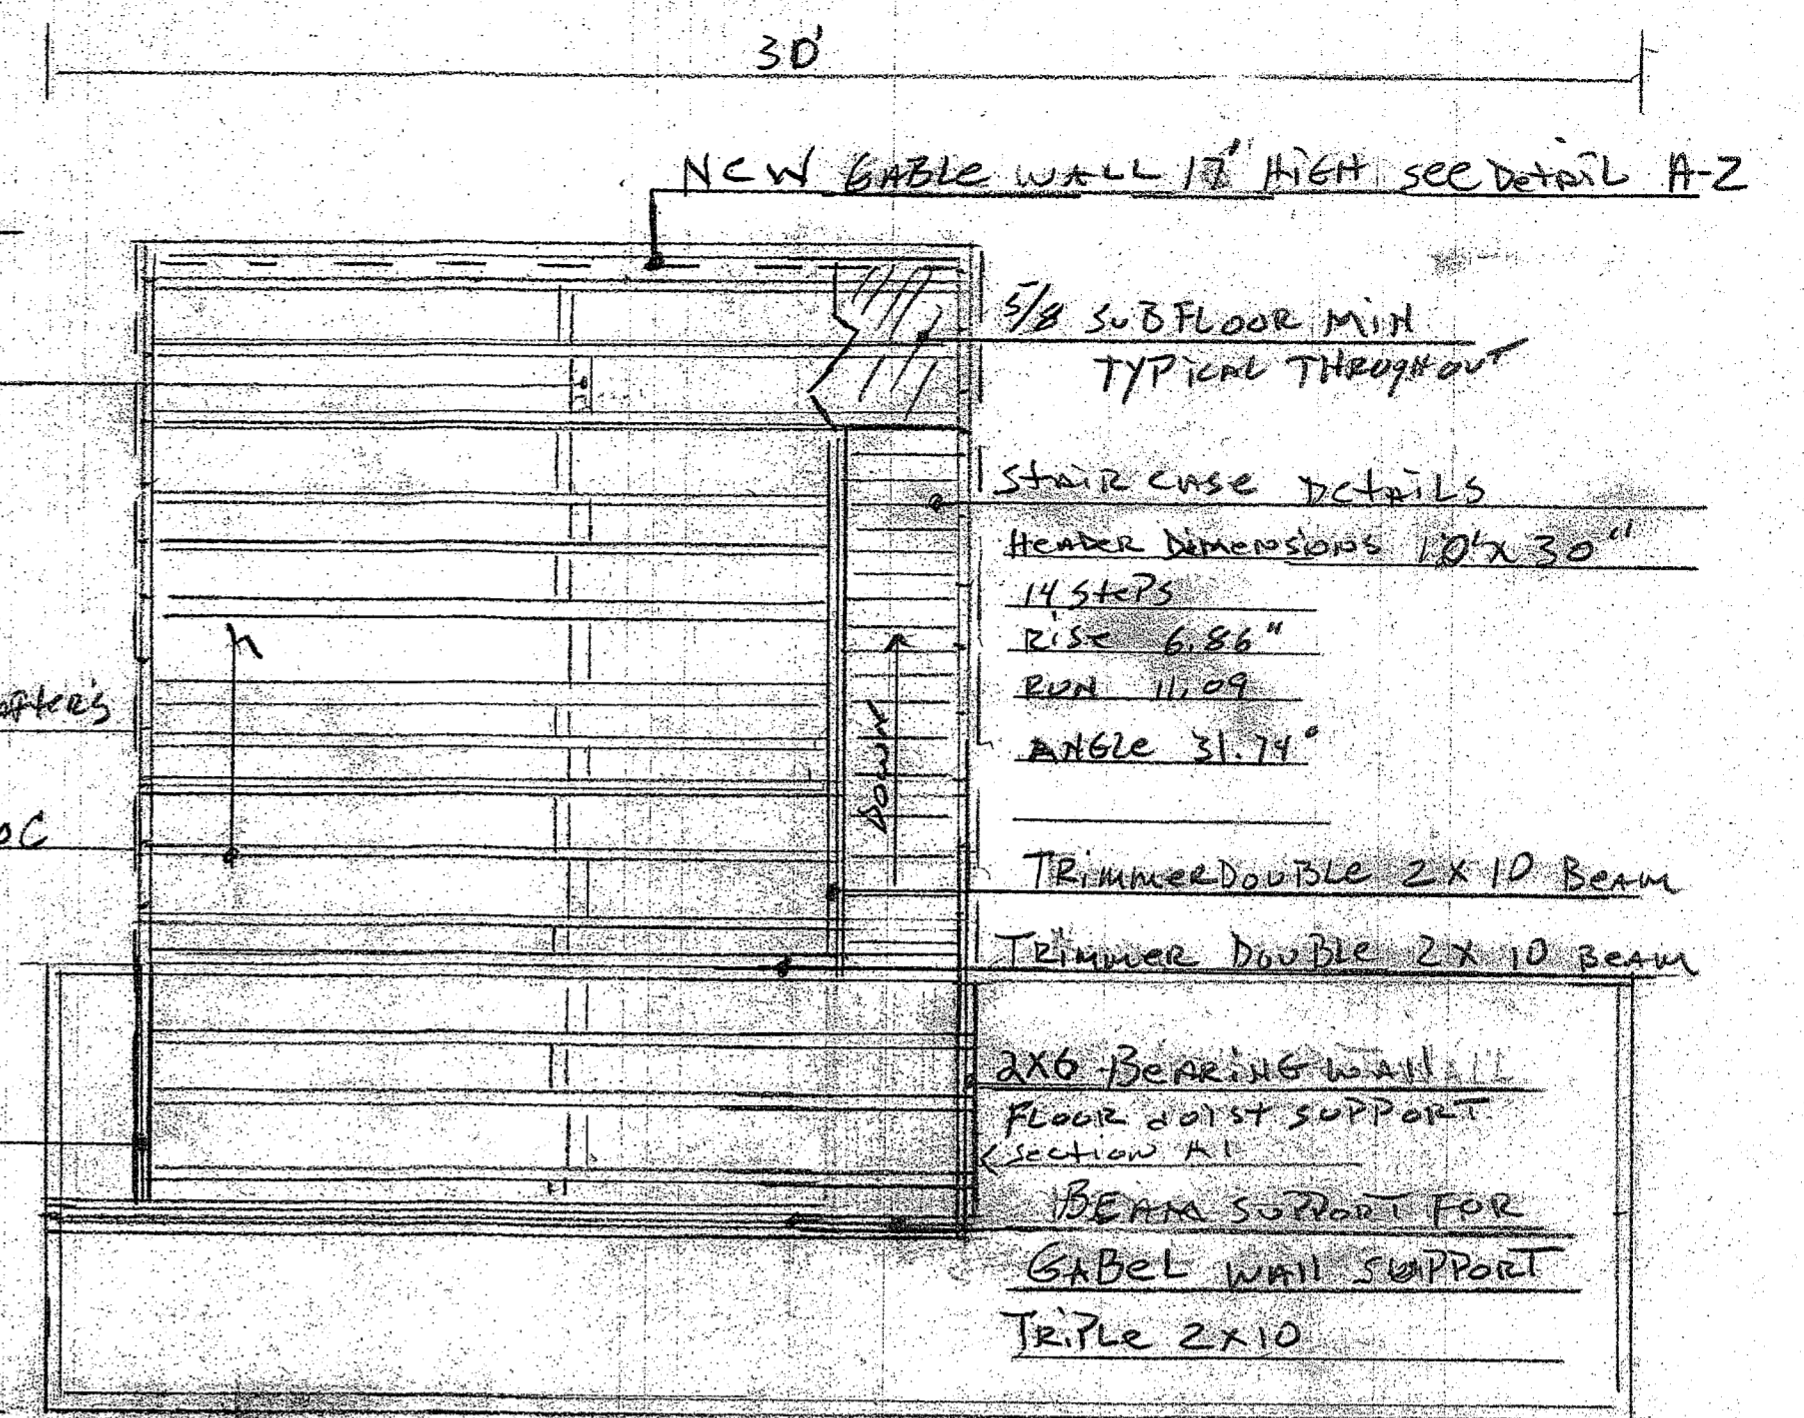 30'
NEW GABLE WALL 17' HIGH SEE DETAIL A-2
5/8 SUBFLOOR MIN
TYPICAL THROGHOUT
STAIR CASE DETAILS
HEADER DIMENSIONS 10' X 30"
14 STEPS
RISE 6.86"
RUN 11.09
ANGLE 31.74°
OC
DOWN
TRIMMER DOUBLE 2 X 10 BEAM
TRIMMER DOUBLE 2 X 10 BEAM
2X6 BEARING WALL
FLOOR JOIST SUPPORT
SECTION A1
BEAM SUPPORT FOR
GABEL WALL SUPPORT
TRIPLE 2 X 10